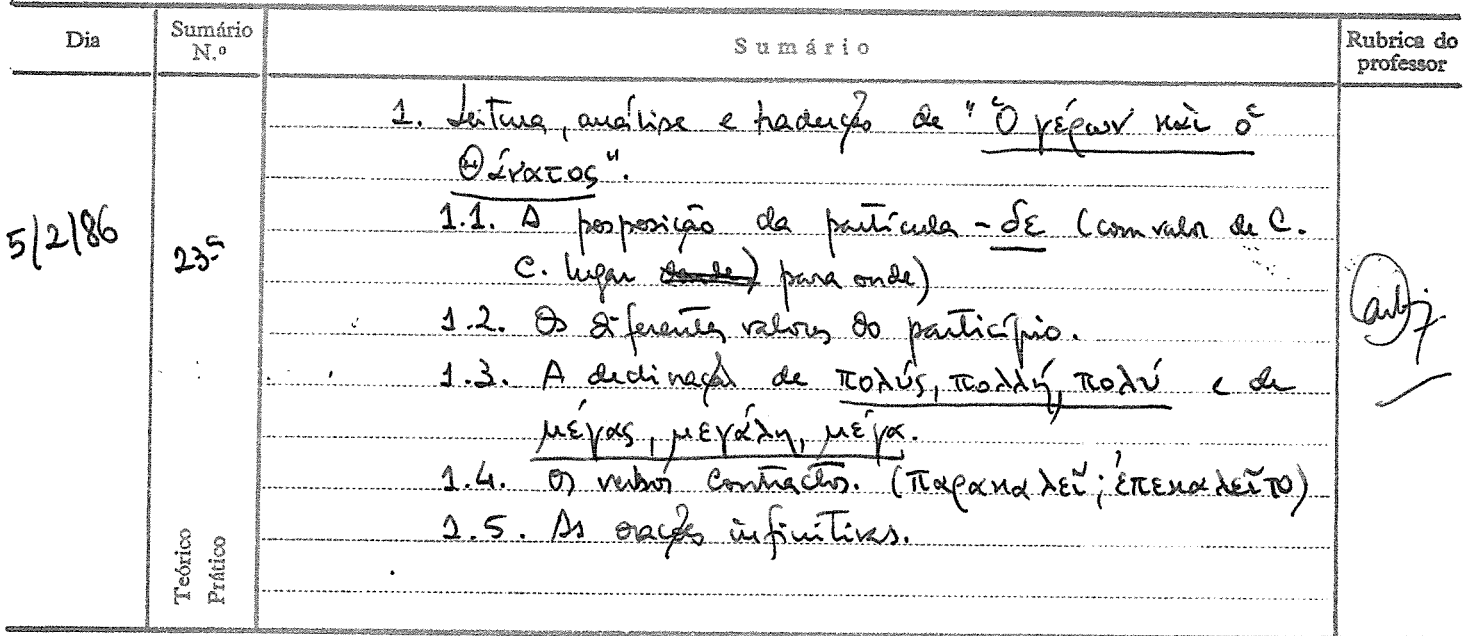 Dia
Sumário N.º
Sumário
Rubrica do professor
5/2/86
23ª
1. Leitura, análise e tradução de "Ὁ γέρων καὶ ὁ
Θάνατος".
1.1. A posposição da partícula -δε (com valor de C.
C. lugar para onde)
1.2. Os diferentes valores do particípio.
1.3. A declinação de πολύς, πολλή, πολύ e de
μέγας, μεγάλη, μέγα.
1.4. Os verbos contractos. (παρακαλεῖ; ἐπεκαλεῖτο)
1.5. As orações infinitivas.
Teórico
Prático